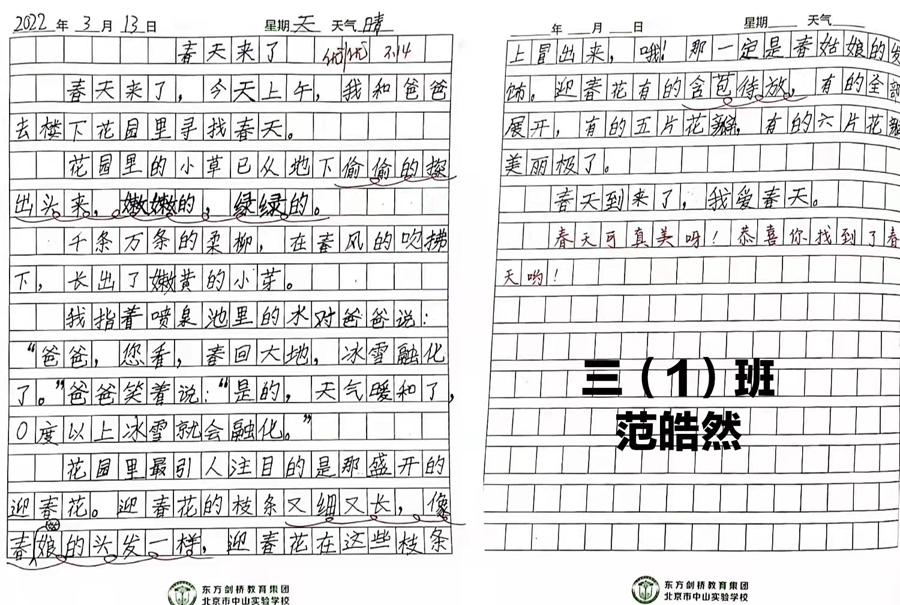 2022年3月13日 星期天 天气晴
春天来了 优 3.14
春天来了，今天上午，我和爸爸
去楼下花园里寻找春天。
花园里的小草已从地下偷偷的探
出头来，嫩嫩的，绿绿的。
千条万条的柔柳，在春风的吹拂
下，长出了嫩黄的小芽。
我指着喷泉池里的水对爸爸说：
“爸爸，您看，春回大地，冰雪融化
了。”爸爸笑着说：“是的，天气暖和了，
0度以上冰雪就会融化。”
花园里最引人注目的是那盛开的
迎春花。迎春花的枝条又细又长，像
春姑娘的头发一样，迎春花在这些枝条
东方剑桥教育集团
北京市中山实验学校
年 月 日 星期 天气
上冒出来，哦！那一定是春姑娘的发
饰。迎春花有的含苞待放，有的全部
展开，有的五片花瓣，有的六片花瓣
美丽极了。
春天到来了，我爱春天。
春天可真美呀！恭喜你找到了春
天哟！
三（1）班
范皓然
东方剑桥教育集团
北京市中山实验学校